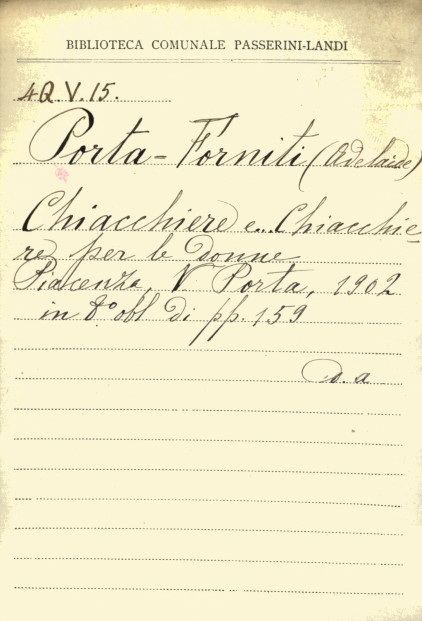 BIBLIOTECA COMUNALE PASSERINI-LANDI
4Q.V.15.
Porta-Forniti (Adelaide)
Chiacchiere e... Chiacchie
re per le Donne
Piacenza, V Porta, 1902
in 8º obl di pp. 159
D. a